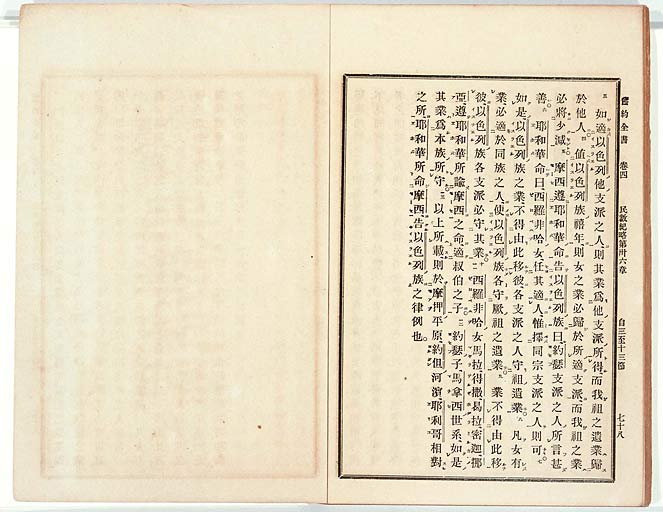 舊約全書 卷四 民數紀略第卅六章 自三至十三節 七十八
如適以色列他支派之人則其業爲他支派所得而我祖之遺業歸
於他人値以色列族禧年則女之業必歸於所適支派而我祖之業
必將少減 摩西遵耶和華命告以色列族曰約瑟支派之人所言甚
善 耶和華命曰西羅非哈女任其適人惟擇同宗支派之人則可
如是以色列族之業不得由此移彼各支派之人守祖遺業 凡女有
業必適於同族之人使以色列族各守厥祖之遺業 業不得由此移
彼以色列族各支派必守其業 西羅非哈女馬拉得撒曷拉密迦挪
亞遵耶和華所諭摩西之命適叔伯之子 約瑟子馬拿西世系如是
其業爲本族所守 以上所載則於摩押平原約但河濱耶利哥相對
之所耶和華所命摩西告以色列族之律例也